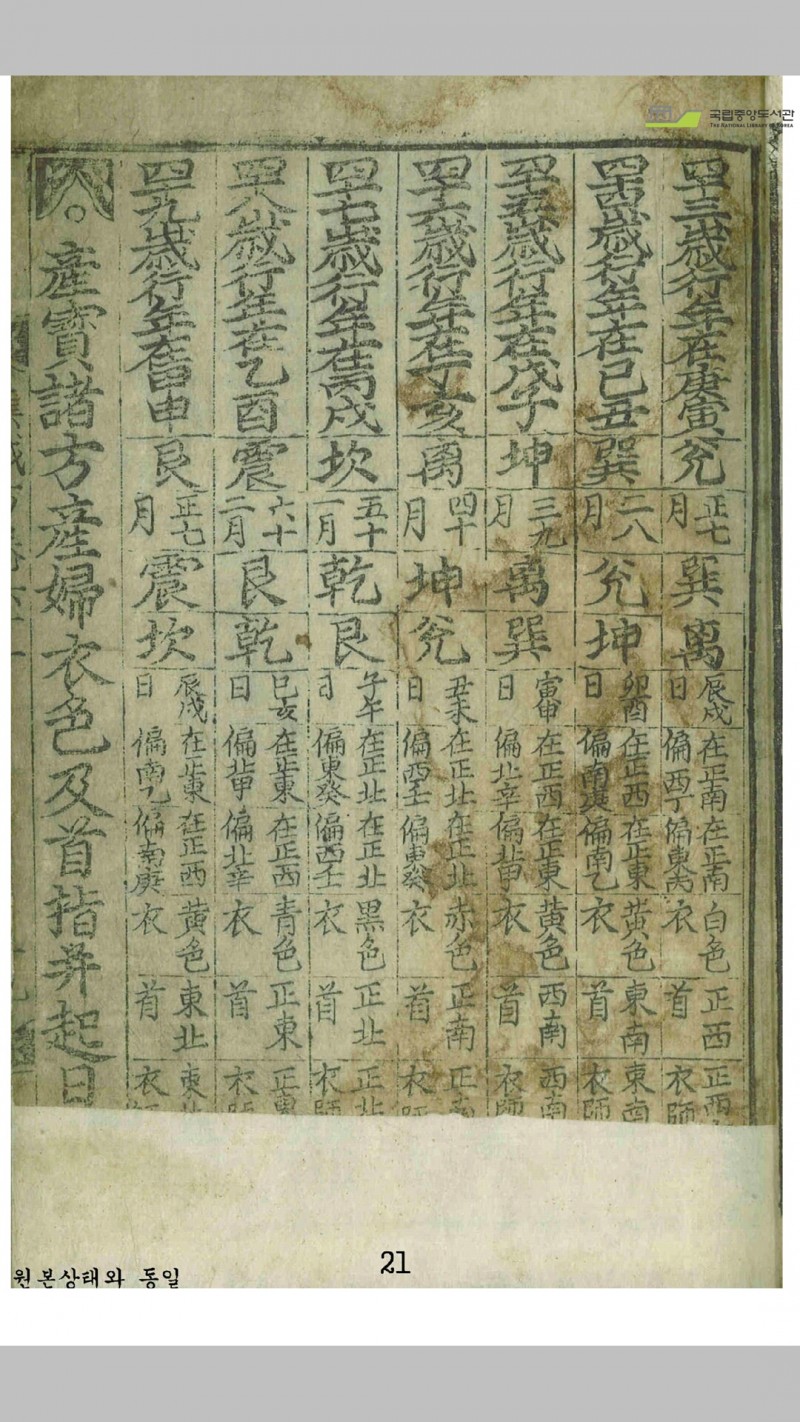 국립중앙도서관
THE NATIONAL LIBRARY OF KOREA
四十三歲行年在庚寅 兊 正七月 巽 离 辰戌日 在正南偏西丁 在正南偏東丙 白色衣 正西首 正西衣師
四十四歲行年在己丑 巽 二八月 兊 坤 卯酉日 在正西偏南庚 在正東偏南乙 黃色衣 東南首 東南衣師
四十五歲行年在戊子 坤 三九月 离 巽 寅申日 在正西偏北辛 在正東偏北甲 黃色衣 西南首 西南衣師
四十六歲行年在丁亥 离 四十月 坤 兊 丑未日 在正北偏西壬 在正北偏東癸 赤色衣 正南首 正南衣師
四十七歲行年在丙戌 坎 五十一月 乾 艮 子午日 在正北偏東癸 在正北偏西壬 黑色衣 正北首 正北衣師
四十八歲行年在乙酉 震 六十二月 艮 乾 巳亥日 在正東偏北甲 在正西偏北辛 青色衣 正東首 正東衣
四十九歲行年在甲申 艮 正七月 震 坎 辰戌日 在正東偏南乙 在正西偏南庚 黃色衣 東北首 東北衣師
○產寶諸方產婦衣色及首指并起日
21
원본상태와 동일